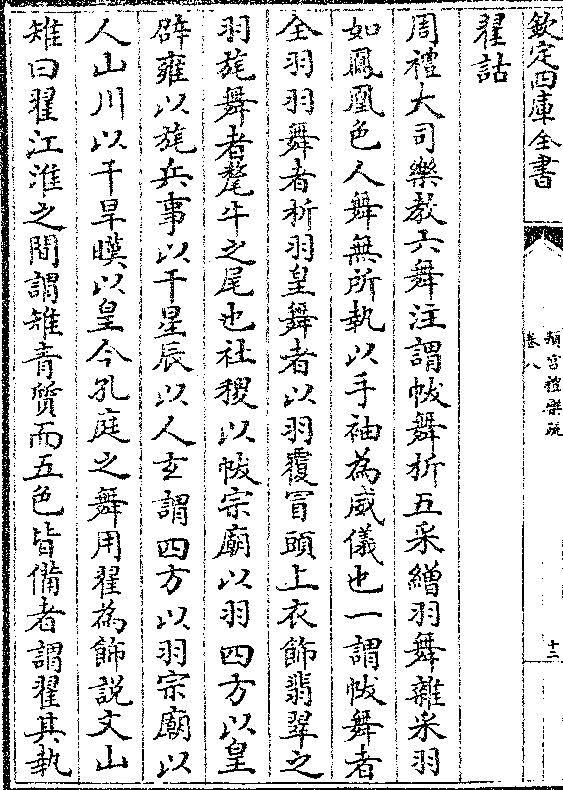 欽定四庫全書
頖宮禮樂疏
卷八
十三
翟詁
周禮大司樂教六舞注謂帗舞析五采繒羽舞雜采羽
如鳳凰色人舞無所執以手袖為威儀也一謂帗舞者
全羽羽舞者析羽皇舞者以羽覆冒頭上衣飾翡翠之
羽旄舞者氂牛之尾也社稷以帗宗廟以羽四方以皇
辟雍以旄兵事以干星辰以人玄謂四方以羽宗廟以
人山川以干旱暵以皇今孔庭之舞用翟為飾説文山
雉曰翟江淮之間謂雉青質而五色皆備者謂翟其執